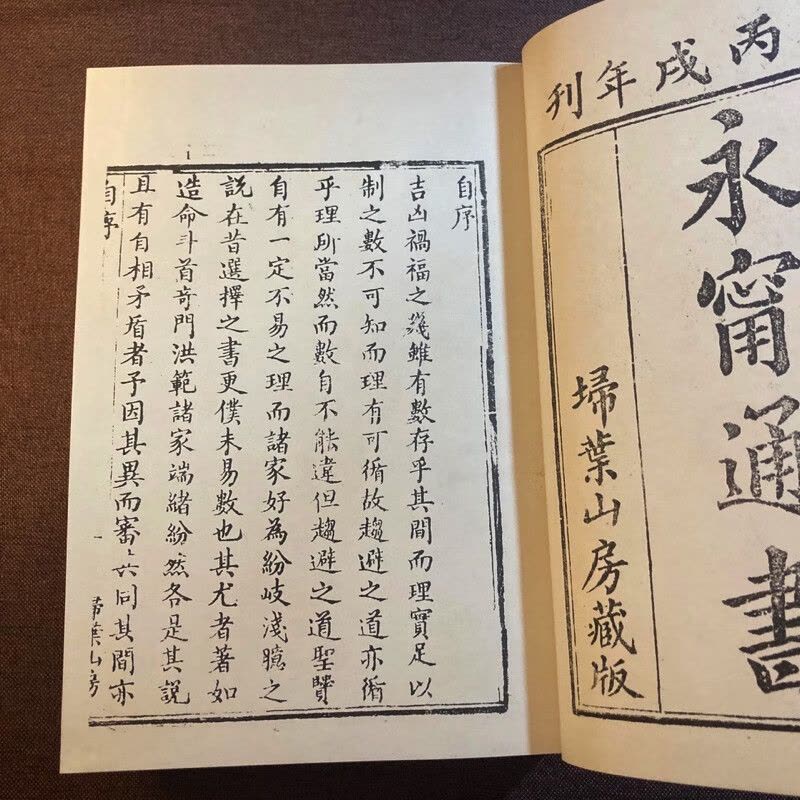 丙戌年刊
永甯通書
埽葉山房藏版
自序
吉凶禍福之幾雖有數存乎其間而理實足以
制之數不可知而理有可循故趨避之道亦術
乎理所當然而數自不能違但趨避之道聖賢
自有一定不易之理而諸家好為紛岐淺臆之
說在昔選擇之書更僕未易數也其尤者著如
造命斗首奇門洪範諸家端緒紛然各是其說
且有自相矛盾者予因其異而審其同其間亦
自序
一
埽葉山房